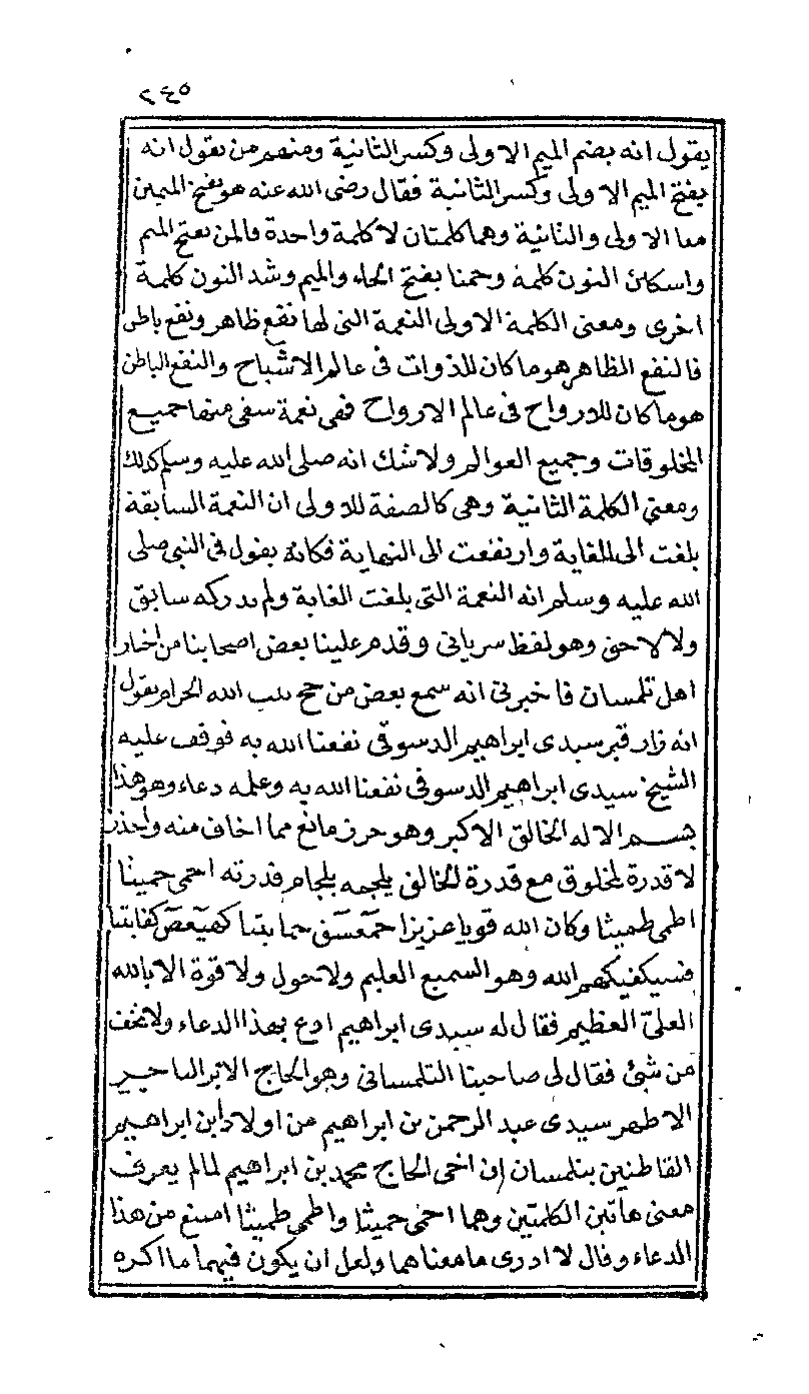 ٢٤٥
يقول انه بضم الميم الاولى وكسر الثانية ومنهم من يقول انه
بفتح الميم الاولى وكسر الثانية فقال رضى الله عنه هو بفتح الميمين
معا الاولى والثانية وهما كلمتان لا كلمة واحدة فالمن بفتح الميم
واسكان النون كلمة وحمنا بفتح الحاء والميم وشد النون كلمة
اخرى ومعنى الكلمة الاولى النعمة التى لها نفع ظاهر ونفع باطن
فالنفع الظاهر هو ما كان للذوات فى عالم الاشباح والنفع الباطن
هو ما كان للارواح فى عالم الارواح فهى نعمة سقى منها جميع
المخلوقات وجميع العوالم ولا شك انه صلى الله عليه وسلم كذلك
ومعنى الكلمة الثانية وهى كالصفة للاولى ان النعمة السابقة
بلغت الى الغاية وارتفعت الى النهاية فكانه يقول فى النبى صلى
الله عليه وسلم انه النعمة التى بلغت الغاية ولم يدركه سابق
ولا لاحق وهو لفظ سريانى وقدم علينا بعض اصحابنا من اخيار
اهل تلمسان فاخبرنى انه سمع بعض من حج بيت الله الحرام يقول
انه زار قبر سيدى ابراهيم الدسوقى نفعنا الله به فوقف عليه
الشيخ سيدى ابراهيم الدسوقى نفعنا الله به وعلمه دعاء وهو هذا
بسم الاله الخالق الاكبر وهو حرز مانع مما اخاف منه واحذر
لا قدرة لمخلوق مع قدرة الخالق يلجمه بلجام قدرته احمى حميثا
اطمى طميثا وكان الله قويا عزيزا حمعسق حمايتنا كهيعص كفايتنا
فسيكفيكهم الله وهو السميع العليم ولا حول ولا قوة الا بالله
العلىّ العظيم فقال له سيدى ابراهيم ادع بهذا الدعاء ولا تخف
من شئ فقال لى صاحبنا التلمسانى وهو الحاج الابر التاجر
الاطهر سيدى عبد الرحمن بن ابراهيم من اولاد ابن ابراهيم
القاطنين بتلمسان ان اخى الحاج محمد بن ابراهيم لما لم يعرف
معنى هاتين الكلمتين وهما احمى حميثا واطمى طميثا امتنع من هذا
الدعاء وقال لا ادرى ما معناهما ولعل ان يكون فيهما ما اكره